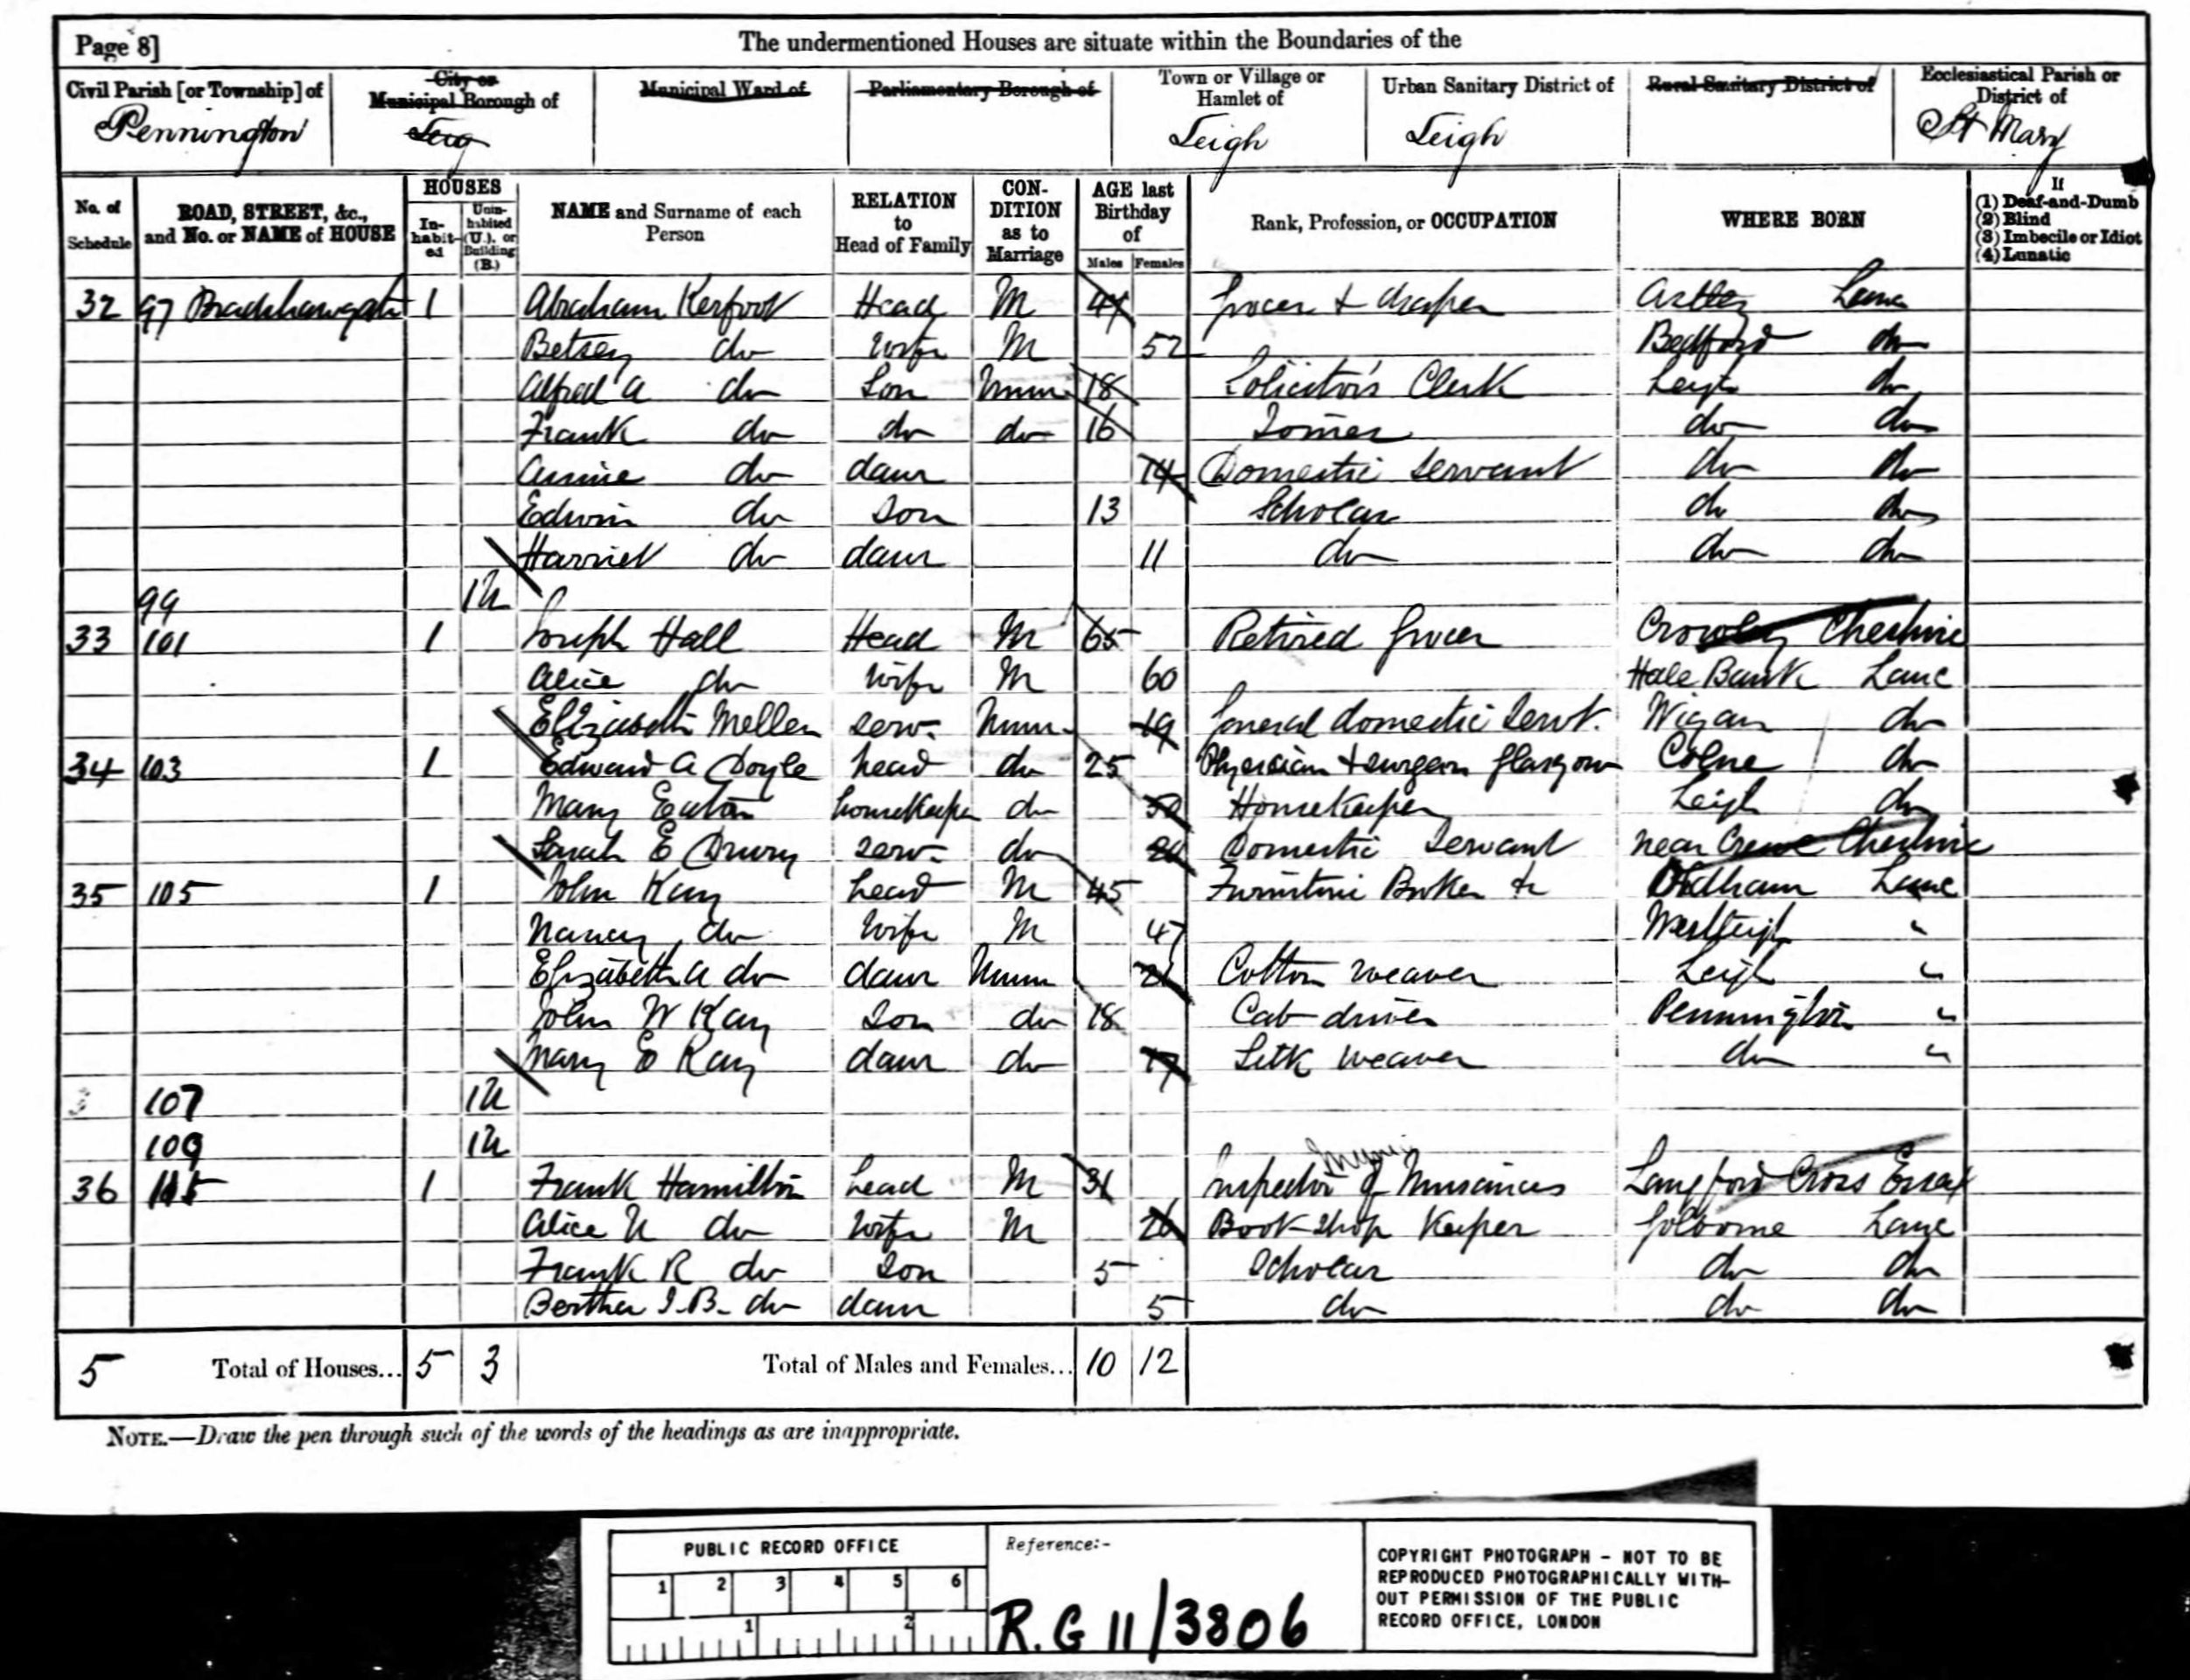 Page 8]
The undermentioned Houses are situate within the Boundaries of the
Civil Parish [or Township] of
City or Municipal Borough of
Municipal Ward of
Parliamentary Borough of
Town or Village or Hamlet of
Urban Sanitary District of
Rural Sanitary District of
Ecclesiastical Parish or District of
Pennington Leig Leigh Leigh St Mary
No. of Schedule
ROAD, STREET, &c., and No. or NAME of HOUSE
HOUSES
In-habit-ed
Unin-habited (U.), or Building (B.)
NAME and Surname of each Person
RELATION to Head of Family
CON-DITION as to Marriage
AGE last Birthday of
Males Females
Rank, Profession, or OCCUPATION
WHERE BORN
If
(1) Deaf-and-Dumb
(2) Blind
(3) Imbecile or Idiot
(4) Lunatic
32 97 Bradshawgate 1 Abraham Kerfoot Head M Grocer & draper Astley Lanc
Betsey do Wife M 52 Bedford do
Alfred A do Son Unm 18 Solicitor's Clerk Leigh do
Frank do do do 16 do do
Annie do daur 14 Domestic Servant do do
Edwin do Son 13 Scholar do do
Harriet do daur 11 do do do
99 1U
33 101 1 Joseph Hall Head M 65 Retired Grocer Crowley Cheshire
Alice do Wife M 60 Hale Bank Lanc
Elizabeth Mellen serv. Unm 19 General domestic Servt. Wigan do
34 103 1 Edward A Doyle head do 25 Physician & surgeon Glasgow Colne do
Mary Eaton housekeeper do Housekeeper Leigh do
Sarah E Drury serv. do Domestic Servant near Crewe Cheshire
35 105 1 John Kay head M 45 Furniture Broker & Oldham Lanc
Nancy do Wife M 47 Westleigh "
Elizabeth A do daur Unm 21 Cotton weaver Leigh "
John W Kay Son do 18 Cab driver Pennington "
Mary E Kay daur do 17 Silk weaver do "
107 1U
109 1U
36 115 1 Frank Hamilton head M 31 Inspector of Nuisances Langford Cross Essex
Alice U do Wife M 26 Book-shop Keeper Golborne Lanc
Frank R do Son 5 Scholar do do
Bertha I.B. do daur 5 do do do
5 Total of Houses... 5 3 Total of Males and Females... 10 12
NOTE.—Draw the pen through such of the words of the headings as are inappropriate.
PUBLIC RECORD OFFICE
1 2 3 4 5 6
1 2
Reference:-
R.G 11/3806
COPYRIGHT PHOTOGRAPH - NOT TO BE
REPRODUCED PHOTOGRAPHICALLY WITH-
OUT PERMISSION OF THE PUBLIC
RECORD OFFICE, LONDON